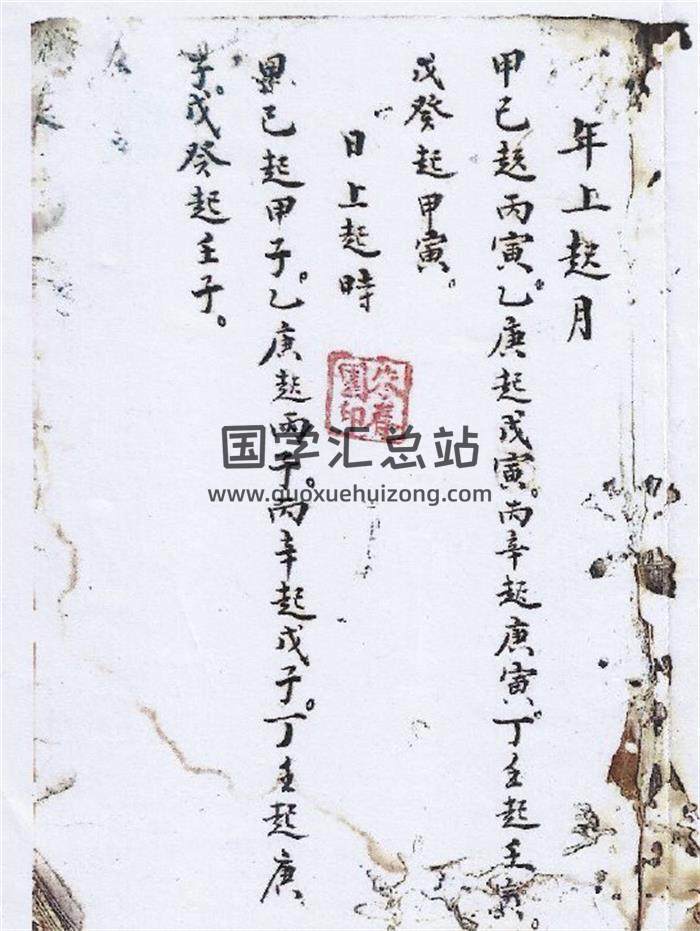 年上起月
甲己起丙寅。乙庚起戊寅。丙辛起庚寅。丁壬起壬寅。
戊癸起甲寅。
日上起時
甲己起甲子。乙庚起丙子。丙辛起戊子。丁壬起庚
子。戊癸起壬子。
国学汇总站
www.guoxuehuizong.com